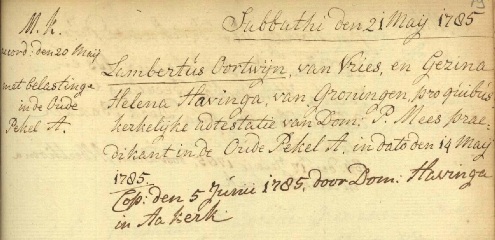 M. k.
Sabbathi den 21 May 1785
geord: den 20 Maij
met belastinge
in de Oude
Pekel A.
Lambertus Oortwijn, van Vries, en Gezina
Helena Havinga, van Groningen, pro quibus
kerkelijke attestatie van Dom: P. Mees prae-
dikant in de Oude Pekel A. in dato den 14 Maij
1785.
Cop: den 5 Junii 1785, door Dom: Havinga
in Aakerk.